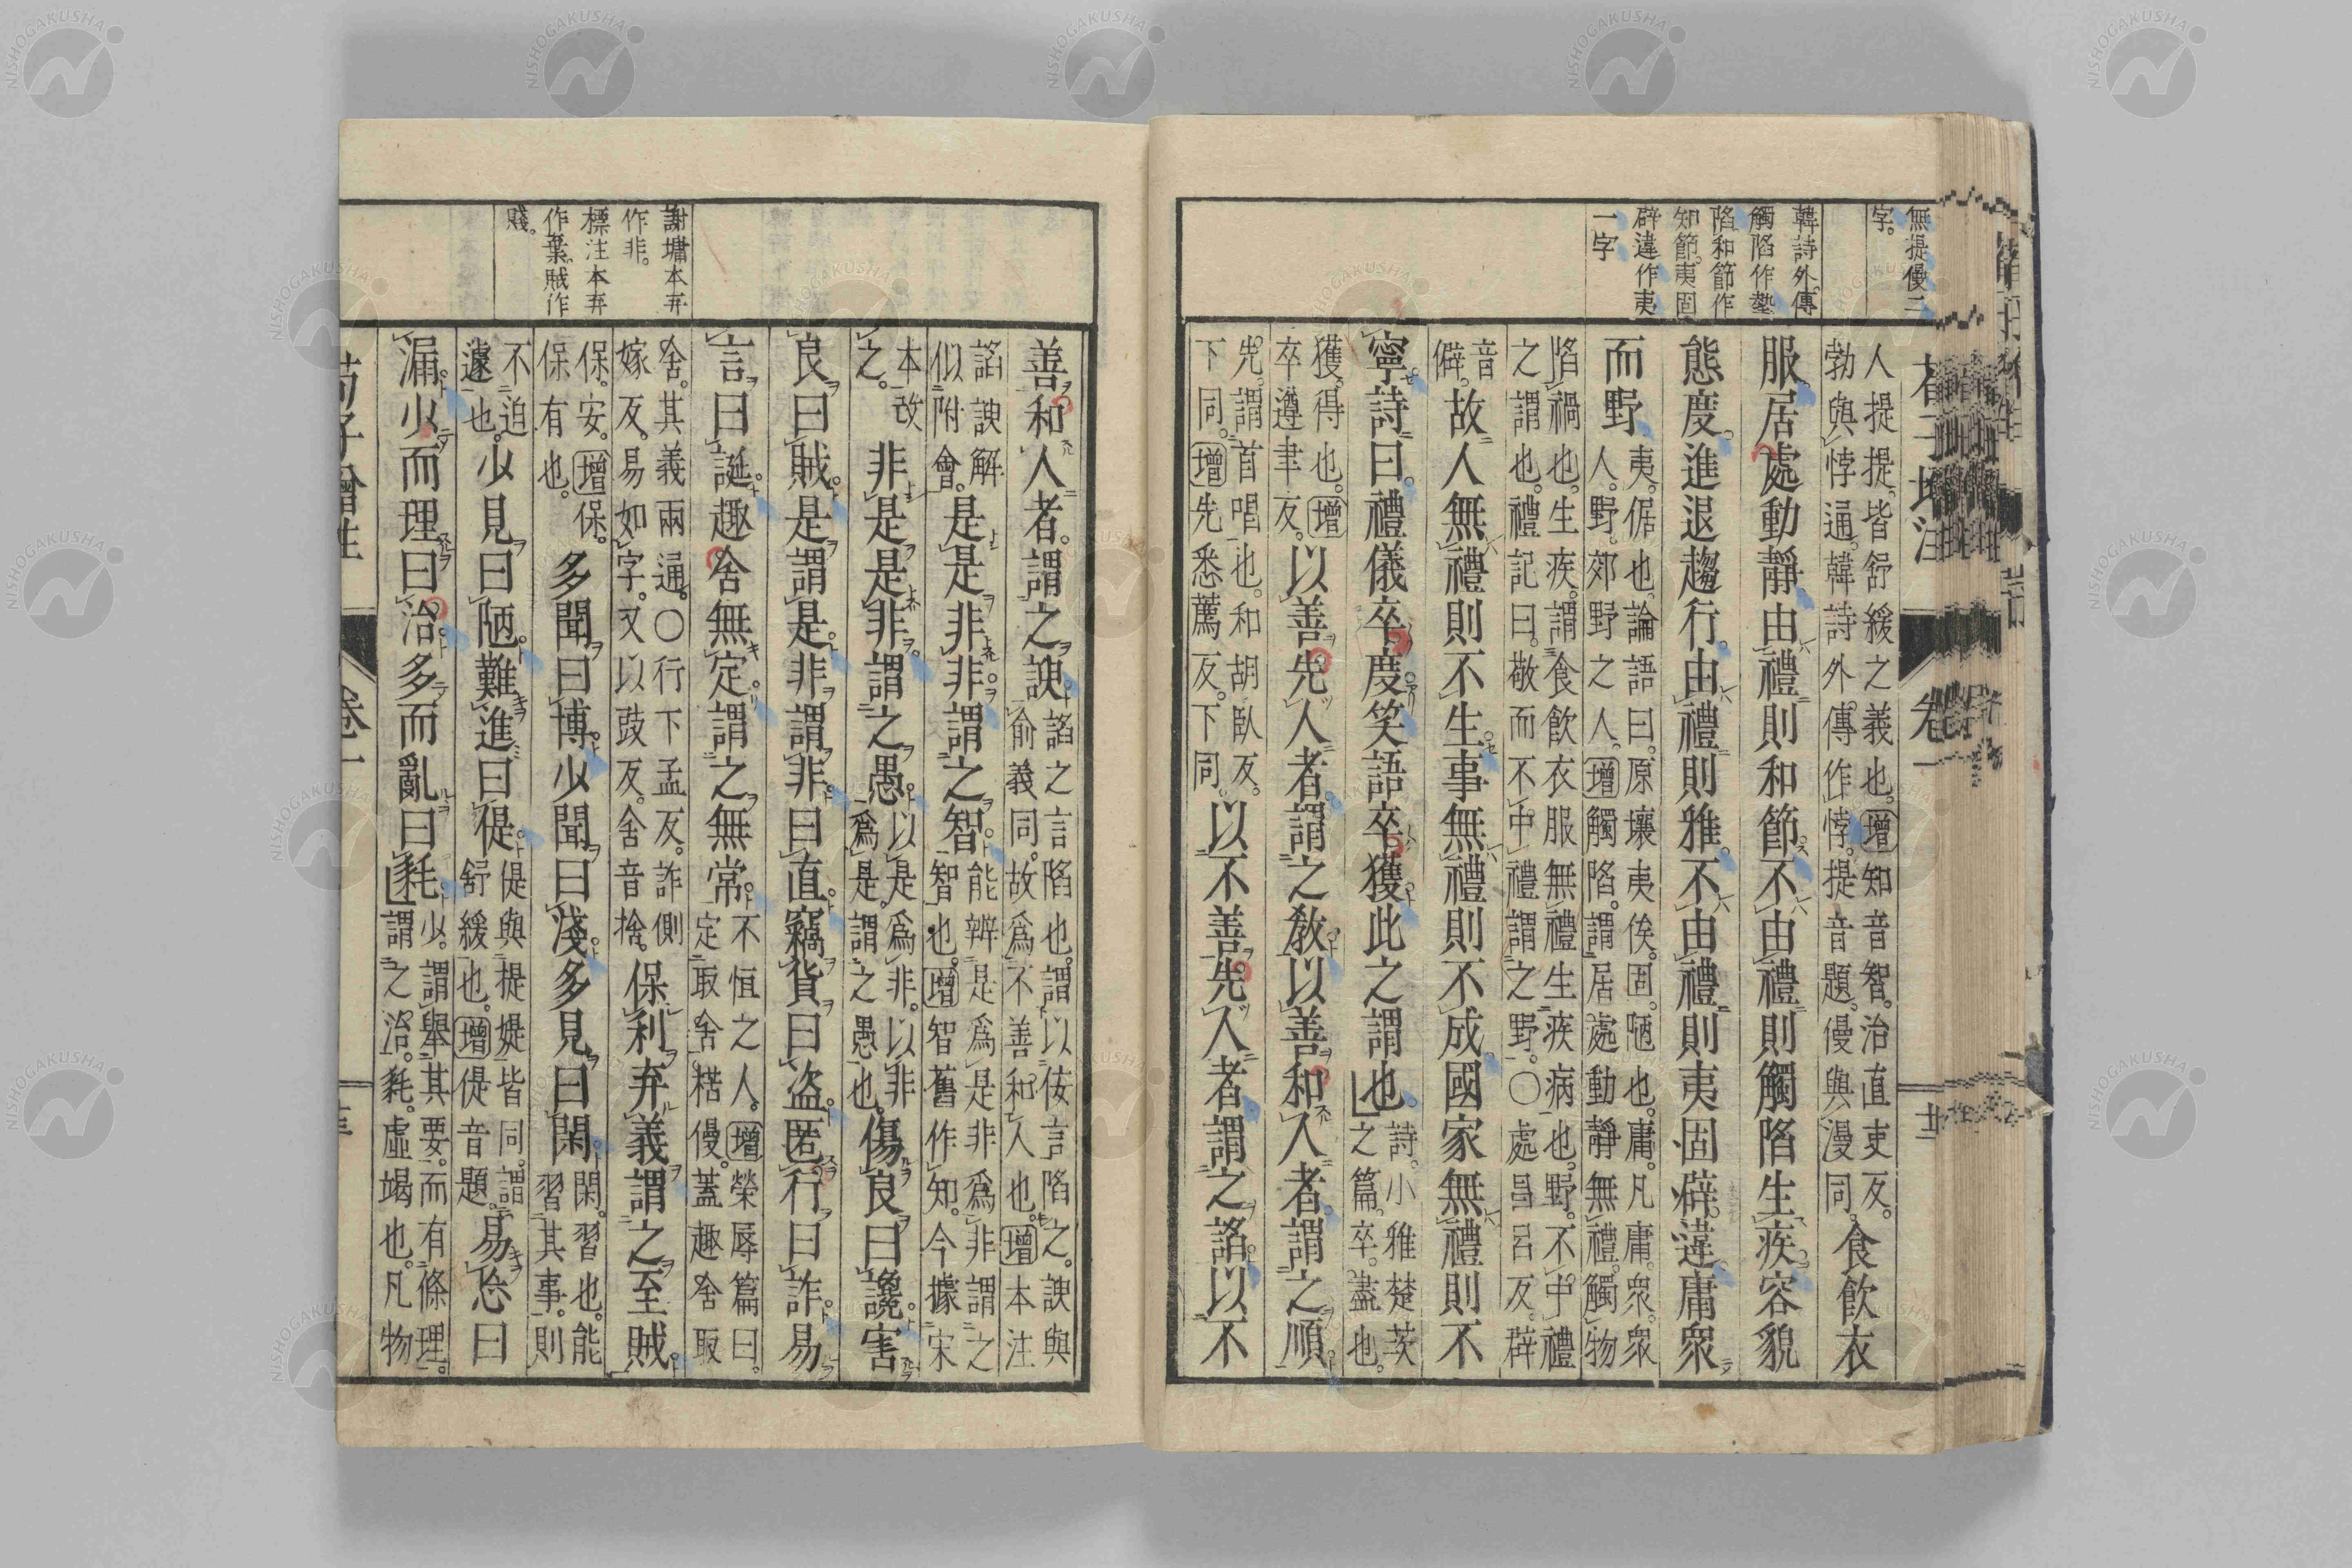 無提僈二
字。
韓詩外傳
觸陷作墊
陷和節作
知節。夷固
辟違作夷
一字
人提提。皆舒緩之義也。增知音智。治直吏反。
勃與悖通。韓詩外傳作悖。提音題。僈與漫同。
食飲衣
服。居處動靜。由禮則和節。不由禮則觸陷生疾。容貌
態度。進退趨行。由禮則雅。不由禮則夷固辟違。庸衆
而野
夷。倨也。論語曰。原壤夷俟。固。陋也。庸。凡庸。衆。衆
人。野。郊野之人。增觸陷。謂居處動靜無禮。觸物
陷禍也。生疾。謂食飲衣服無禮生疾病也。野。不中禮
之謂也。禮記曰。敬而不中禮謂之野。○處昌呂反。辟
音
僻。
故人無禮則不生。事無禮則不成。國家無禮則不
寧。詩曰。禮儀卒度。笑語卒獲。此之謂也。
詩。小雅楚茨
之篇。卒。盡也。
獲。得也。增
卒遵聿反。
以善先人者。謂之敎。以善和人者。謂之順。
先。謂首唱也。和胡臥反。
下同。增先悉薦反。下同。
以不善先人者。謂之諂。以不
謝墉本弃
作非。
標注本弃
作棄。賊作
賤。
善和人者。謂之諛。
諂之言陷也。謂以佞言陷之。諛與
俞義同。故爲不善和人也。增本注
諂諛解
似附會。
是是非非。謂之智。
能辨是爲是非爲非謂之
智也。增智舊作知。今據宋
本改
之。
非是是非。謂之愚。
以是爲非。以非
爲是。謂之愚也。
傷良曰讒。害
良曰賊。是謂是。非謂非。曰直。竊貨曰盜。匿行曰詐。易
言曰誕。趣舍無定。謂之無常。
不恒之人。增榮辱篇曰。
定取舍楛僈。蓋趣舍取
舍。其義兩通。○行下孟反。詐側
嫁反。易如字。又以豉反。舍音捨。
保利弃義。謂之至賊。
保。安。增保。
保有也。
多聞曰博。少聞曰淺。多見曰閑。
閑。習也。能
習其事。則
不迫
遽也。
少見曰陋。難進曰偍。
偍與提媞皆同。謂
舒緩也。增偍音題。
易忘曰
漏。少而理曰治。多而亂曰秏。
少。謂擧其要。而有條理。
謂之治。秏。虛竭也。凡物